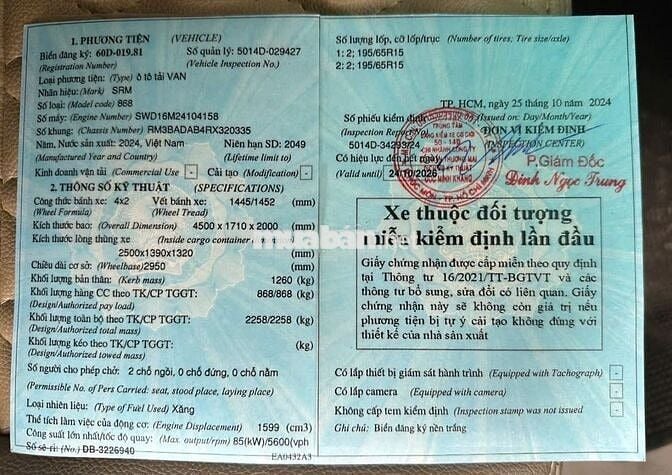 1. PHƯƠNG TIỆN (VEHICLE)
Biển đăng ký: 60D-019.81 Số quản lý: 5014D-029427
(Registration Number) (Vehicle Inspection No.)
Loại phương tiện: (Type) ô tô tải VAN
Nhãn hiệu: (Mark) SRM
Số loại: (Model code) 868
Số máy: (Engine Number) SWD16M24104158
Số khung: (Chassis Number) RM3BADAB4RX320335
Năm, Nước sản xuất: 2024, Việt Nam Niên hạn SD: 2049
(Manufactured Year and Country) (Lifetime limit to)
Kinh doanh vận tải (Commercial Use) - Cải tạo (Modification) -
2. THÔNG SỐ KỸ THUẬT (SPECIFICATIONS)
Công thức bánh xe: 4x2 Vết bánh xe: 1445/1452 (mm)
(Wheel Formula) (Wheel Tread)
Kích thước bao: (Overall Dimension) 4500 x 1710 x 2000 (mm)
Kích thước lòng thùng xe (Inside cargo container
2500x1390x1320 (mm)
Chiều dài cơ sở: (Wheelbase) 2950 (mm)
Khối lượng bản thân: (Kerb mass) 1260 (kg)
Khối lượng hàng CC theo TK/CP TGGT: 868/868 (kg)
(Design/Authorized pay load)
Khối lượng toàn bộ theo TK/CP TGGT: 2258/2258 (kg)
(Design/Authorized total mass)
Khối lượng kéo theo TK/CP TGGT: (kg)
(Design/Authorized towed mass)
Số người cho phép chở: 2 chỗ ngồi, 0 chỗ đứng, 0 chỗ nằm
(Permissible No. of Pers Carried: seat, stood place, laying place)
Loại nhiên liệu: (Type of Fuel Used) Xăng
Thể tích làm việc của động cơ: (Engine Displacement) 1599 (cm3)
Công suất lớn nhất/tốc độ quay: (Max. output/rpm) 85(kW)/5600(vph
Số sê-ri: (No.) DB-3226940 EA0432A3
Số lượng lốp, cỡ lốp/trục (Number of tires; Tire size/axle)
1: 2; 195/65R15
2: 2; 195/65R15
TP. HCM, ngày 25 tháng 10 năm 2024
Số phiếu kiểm định (Issued on: Day/Month/Year)
(Inspection Report No) ĐƠN VỊ KIỂM ĐỊNH
5014D-34293/24 (INSPECTION CENTER)
Có hiệu lực đến hết ngày P.Giám Đốc
(Valid until) 24/10/2026 Đinh Ngọc Trung
Xe thuộc đối tượng
miễn kiểm định lần đầu
Giấy chứng nhận được cấp miễn theo quy định
tại Thông tư 16/2021/TT-BGTVT và các
thông tư bổ sung, sửa đổi có liên quan. Giấy
chứng nhận này sẽ không còn giá trị nếu
phương tiện bị tự ý cải tạo không đúng với
thiết kế của nhà sản xuất
Có lắp thiết bị giám sát hành trình (Equipped with Tachograph) -
Có lắp camera (Equipped with camera) -
Không cấp tem kiểm định (Inspection stamp was not issued -
Ghi chú: Biển đăng ký nền trắng